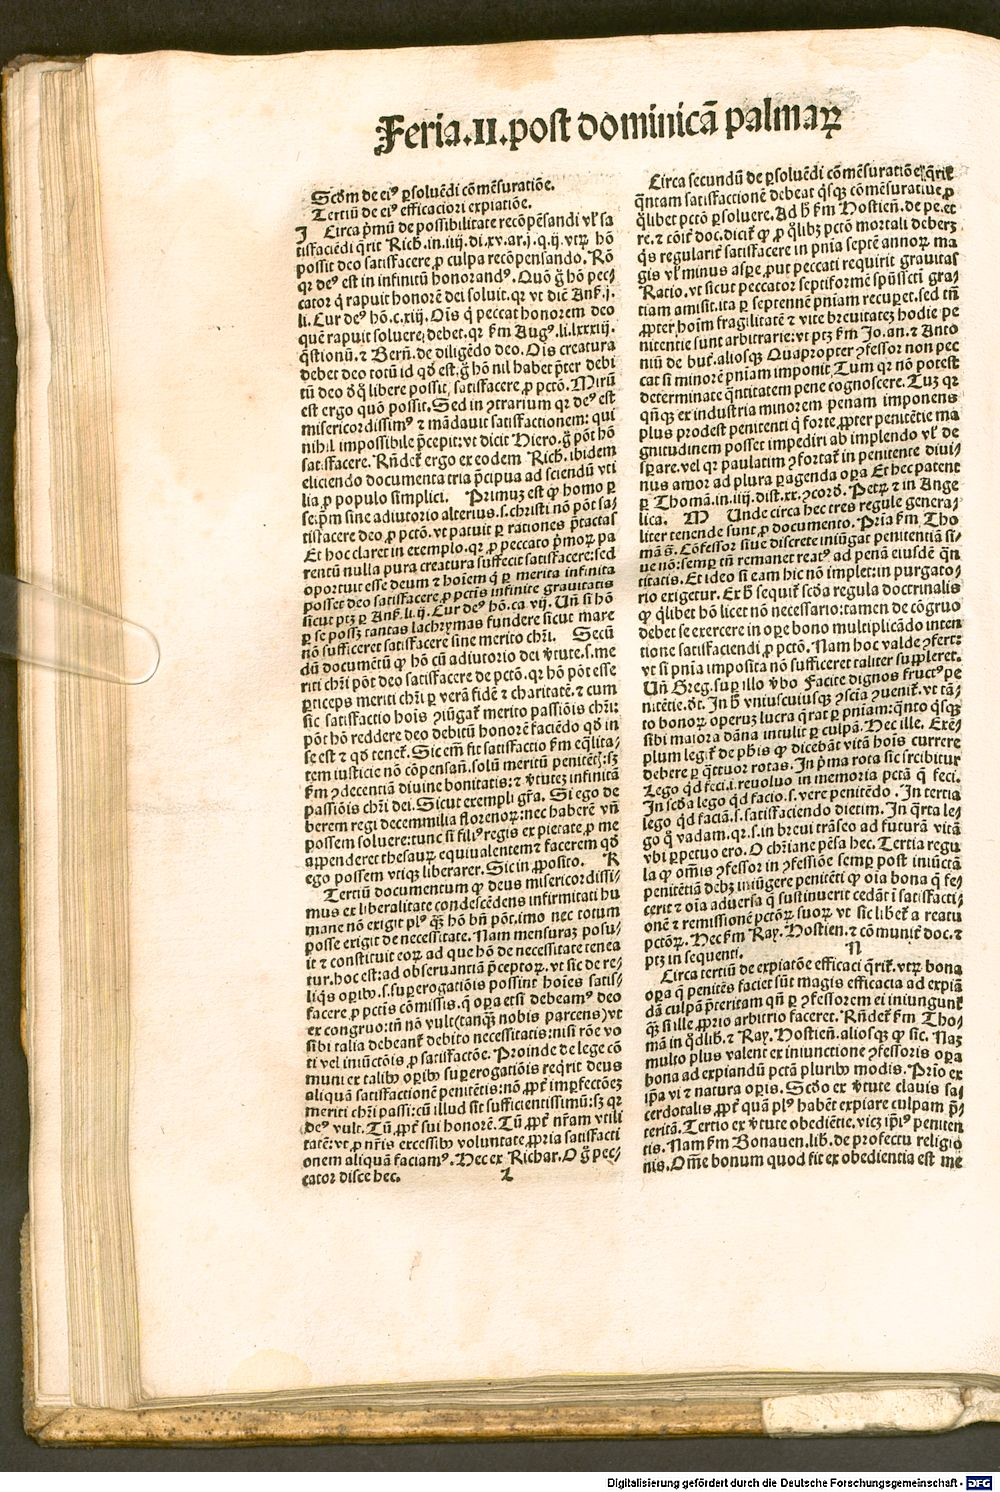 Feria.II.post dominicā palmaꝝ
Scḋm de eiꝰ ꝑsoluēdi cōmēsuratiōe.
Tertiū de eiꝰ efficaciori expiatiōe.
I Circa pͥmū de possibilitate recōpēsandi vl̓ sa
tiſfaciēdi q̄rit Rich̓.in.iiij.di.xv.ar.j.q.ij.vtꝝ hō
possit deo satiſfacere ꝓ culpa recōpensando. Rō
qꝛ deꝰ est in infinitū honorandꝰ. Quō g̊ hō pec⸗
cator q̇ rapuit honorē dei soluit. qꝛ vt dič Anſ̓.j.
li. Cur deꝰ hō.c.xiij. Oīs q̇ peccat honorem deo
quē rapuit soluere debet. qꝛ ẜm Augꝰ.li.lxxxiij.
q̄stionū. ⁊ Berñ. de diligēdo deo. Oīs creatura
debet deo totū id qḋ est. g̊ hō nil habet p̄ter debi
tū deo ... libere possit satiſfacere ꝓ pctō. Mirū
est ergo quō possit. Sed in ꝯtrarium qꝛ deꝰ est
misericordissimꝰ ⁊ mādauit satiſfactionem: qui
nihil impossibile p̄cepit: vt dicit Hiero. g̊ pōt hō
satiſfacere. Rñdet̓ ergo ex eodem Rich̓. ibidem
eliciendo documenta tria p̄cipua ad sciendū vti
lia ꝓ populo simplici. Primuꝫ est ꝙ homo ꝑ
seip̄m sine adiutorio alterius.s.christi nō pōt sa⸗
tiſfacere deo ꝓ pctō. vt patuit ꝑ rationes p̄tactas
Et hoc claret in exemplo. qꝛ ꝓ peccato pͥmoꝝ pa
rentū nulla pura creatura suffecit satiſfacere: sed
oportuit esse deum ⁊ hoīem q̇ ꝑ merita infinita
posset deo satiſfacere ꝓ pctīs infinite grauitatis
sicut ptꝫ ꝑ Anſ̓.li.ij. Cur deꝰ hō.ca.vij. Uñ si hō
ꝑ se possꝫ tantas lachrymas fundere sicut mare
nō sufficeret satiſfacere sine merito chr̄i. Secū
dū documētū ꝙ hō cū adiutorio dei ꝟtute.s.me
riti chr̄i pōt deo satiſfacere de pctō. qꝛ hō pōt esse
ꝑticeps meriti chr̄i ꝑ verā fidē ⁊ charitatē. ⁊ cum
sic satiſfactio hoīs ꝯiūgat̓ merito passiōis chr̄i:
pōt hō reddere deo debitū honorē faciēdo qḋ in
se est ⁊ qḋ tenet̓. Sic em̄ fit satiſfactio ẜm eq̄lita⸗
tem iusticie nō cōpensañ. solū meritū penitētꝭ: sꝫ
ẜm ꝯdecentiā diuine bonitatis: ⁊ ꝟtuteꝫ infinitā
passiōis chr̄i dei. Sicut exempli gr̄a. Si ego de
berem regi decemmilia florenoꝝ: nec haberē vñ
possem soluere: tunc si filiꝰ regis ex pietate ꝓ me
appenderet thesauꝝ equiualentem ⁊ facerem qḋ
ego possem vtiqꝫ liberarer. Sic in ꝓposito. K
Tertiū documentum ꝙ deus misericordissi⸗
mus ex liberalitate condescēdens infirmitati hu
mane nō exigit plꝰ qꝫ hō bñ pōt. imo nec totum
posse exigit de necessitate. Nam mensuraꝫ posu⸗
it ⁊ constituit eoꝝ ad que hō de necessitate tenea
tur. hoc est: ad obseruantiā p̄ceptoꝝ. vt sic de re⸗
liq̇s opibꝰ.s.suꝑerogatiōis possint hoīes satiſ⸗
facere ꝓ pctīs cōmissis. q̄ oꝑa etsi debeamꝰ deo
ex congruo: tñ nō vult (tanqꝫ nobis parcens) vt
sibi talia debeant̓ debito necessitatis: nisi rōe vo
ti vel iniūctōis ꝓ satiſfactōe. Proinde de lege cō
muni ex talibꝰ opibꝰ suꝑerogatiōis req̇rit deus
aliquā satiſfactionē penitētis: nō ꝓpt̓ imꝑfectōeꝫ
meriti chr̄i passi: cū illud sit sufficientissimū: sꝫ qꝛ
deꝰ vult. Tū ꝓpt̓ sui honorē. Tū ꝓpt̓ nr̄am vtili
tatē: vt ꝓ nr̄is excessibꝰ voluntate ꝓpria satiſfacti
onem aliquā faciamꝰ. Hec ex Richar. O g̊ pec⸗
cator disce hec. L
Circa secundū de ꝑsoluēdi cōmēsuratiōe q̄rit̓
q̄ntam satiſfactionē debeat q̇sqꝫ cōmēsuratiue ꝓ
q̇libet pctō ꝑsoluere. Ad ħ ẜm Hostieñ. de pe. et
re. ⁊ cōit̓ doc. dicit̓ ꝙ ꝓ q̇libꝫ pctō mortali deberꝫ
q̇s regularit̓ satiſfacere in pn̄ia septē annoꝝ ma
gis vl̓ minus aspe, put peccati requirit grauitas
Ratio. vt sicut peccator septiformē spūsscti gra⸗
tiam amisit. ita ꝑ septennē pn̄iam recuꝑet. sed tñ
ꝓpter hoīm fragilitatē ⁊ vite breuitateꝫ hodie pe
nitentie sunt arbitrarie: vt ptꝫ ẜm Jo.an. ⁊ Anto
niū de but̓. aliosqꝫ Quapropter ꝯfessor non pec
cat si minorē pn̄iam imponit. Tum qꝛ nō potest
determinate q̄ntitatem pene cognoscere. Tuꝫ qꝛ
qn̄qꝫ ex industria minorem penam imponens
plus prodest penitenti q̇ forte ꝓpter penitētie ma
gnitudinem posset impediri ab implendo vl̓ de
sꝑare. vel qꝛ paulatim ꝯfortat̓ in penitente diui⸗
nus amor ad plura ꝑagenda oꝑa Et hec patent
ꝑ Thomā.in.iiij.dist.xx. ꝯcorḋ. Petꝝ ⁊ in Ange
lica. M Unde circa hec tres regule genera⸗
liter tenende sunt ꝓ documento. Pria ẜm Tho
mā ... Cōfessor siue discrete iniūgat penitentiā si⸗
ue nō: semꝑ tñ remanet reatꝰ ad penā eiusdē q̄n
titatis. Et ideo si eam hic nō implet: in purgato⸗
rio exigetur. Ex ħ sequit̓ scḋa regula doctrinalis
ꝙ q̇libet hō licet nō necessario: tamen de cōgruo
debet se exercere in oꝑe bono multiplicādo inten
tione satiſfaciendi ꝓ pctō. Nam hoc valde ꝯfert:
vt si pn̄ia imposita nō sufficeret taliter suppleret.
Uñ Greg. suꝑ illo ꝟbo Facite dignos fructꝰ pe
nitētie. ḋt. In ħ vniuscuiusqꝫ ꝯscīa ꝯuenit̓. vt tā⸗
to bonoꝝ operuꝫ lucra q̄rat ꝑ pn̄iam: q̄nto q̇sqꝫ
sibi maiora dāna intulit ꝑ culpā. Hec ille. Exē⸗
plum legit̓ de phīs ꝙ dicebāt vitā hoīs currere
debere ꝑ q̄ttuor rotas. In pͥma rota sic srcibitur
Lego qḋ feci.i.reuoluo in memoria pctā q̄ feci.
In scḋa lego qḋ facio.s.vere penitēdo. In tertia
lego qḋ faciā.s.satiſfaciendo dietim. In q̄rta le⸗
go q̊ vadam.qꝛ.s.in breui trāseo ad futurā vitā
vbi ꝑpetuo ero. O chr̄iane pēsa hec. Tertia regu
la ꝙ om̄is ꝯfessor in ꝯfessiōe semꝑ post iniūctā
penitētiā debꝫ iniūgere penitēti ꝙ oīa bona q̄ fe⸗
cerit ⁊ oīa aduersa q̄ sustinuerit cedāt ī satiſfacti⸗
onē ⁊ remissionē pctōꝝ suoꝝ vt sic liberet̓ a reatu
pctōꝝ. Hec ẜm Ray. Hostieñ. ⁊ cōmunit̓ doc. ⁊
ptꝫ in sequenti. N
Circa tertiū de expiatōe efficaci q̄rit̓. vtꝝ bona
oꝑa q̄ penitēs faciet sūt magis efficacia ad expiā
dā culpā p̄teritam qn̄ ꝑ ꝯfessorem ei iniungunt̓
qꝫ si ille ꝓprio arbitrio faceret. Rñdet̓ ẜm Tho⸗
mā in q̊dlib̓. ⁊ Ray. Hostieñ. aliosqꝫ ꝙ sic. Naꝫ
multo plus valent ex iniunctione ꝯfessoris oꝑa
bona ad expiandū pctā pluribꝰ modis. Prīo ex
ip̄a vi ⁊ natura opis. Scḋo ex ꝟtute clauis sa⸗
cerdotalis ꝓpt̓ quā plꝰ habēt expiare culpam p̄⸗
teritā. Tertio ex ꝟtute obediētie. vicꝫ ip̄iꝰ peniten
tis. Nam ẜm Bonauen. lib. de profectu religio
nis. Om̄e bonum quod fit ex obedientia est me
Digitalisierung gefördert durch die Deutsche Forschungsgemeinschaft - DFG